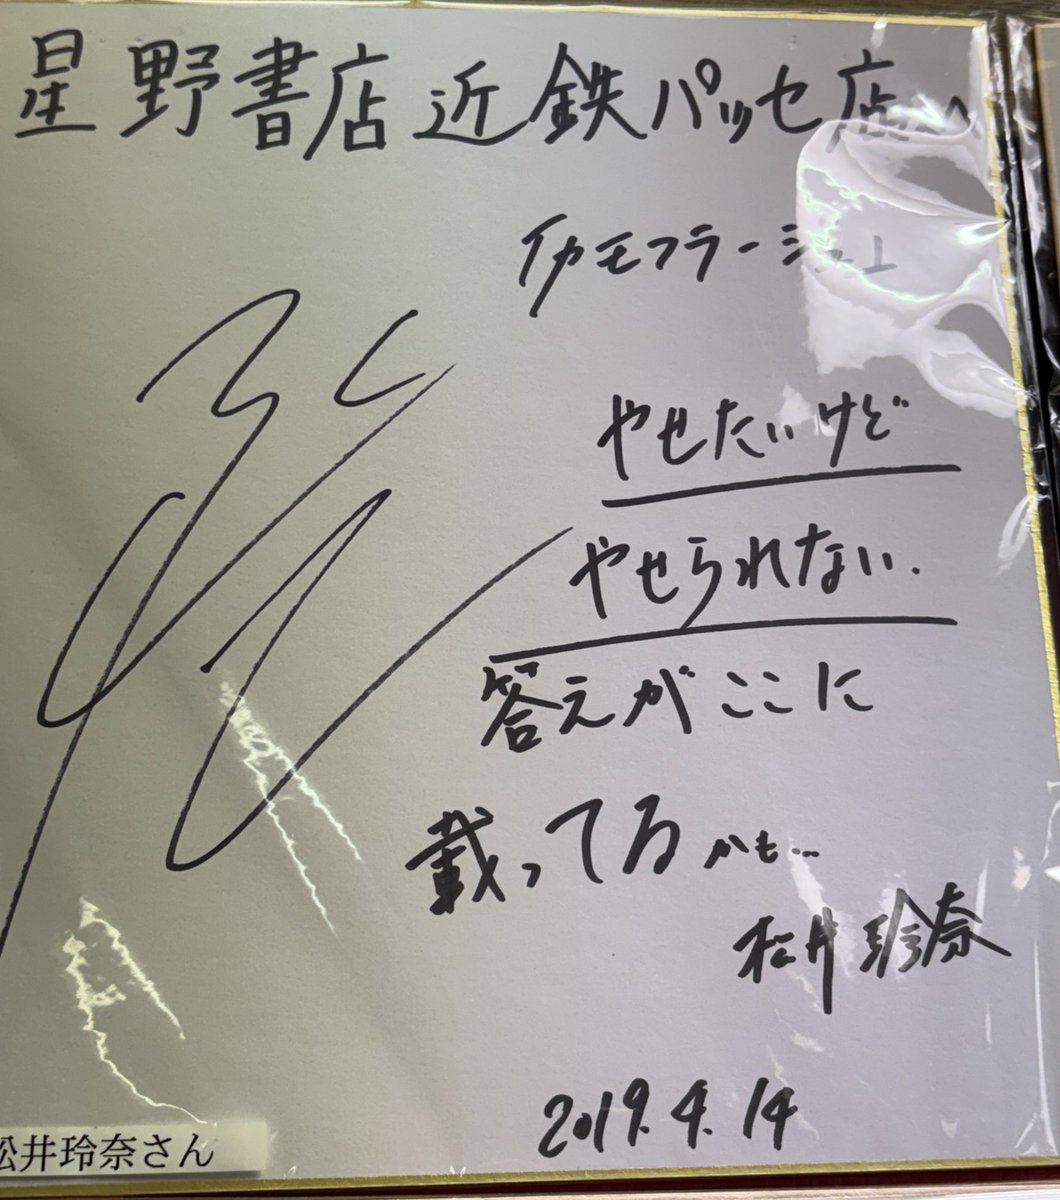 星野書店近鉄パッセ店へ
「カモフラージュ」
やせたいけど
やせられない.
答えがここに
載ってるかも…
松井玲奈
2019.4.14
松井玲奈さん